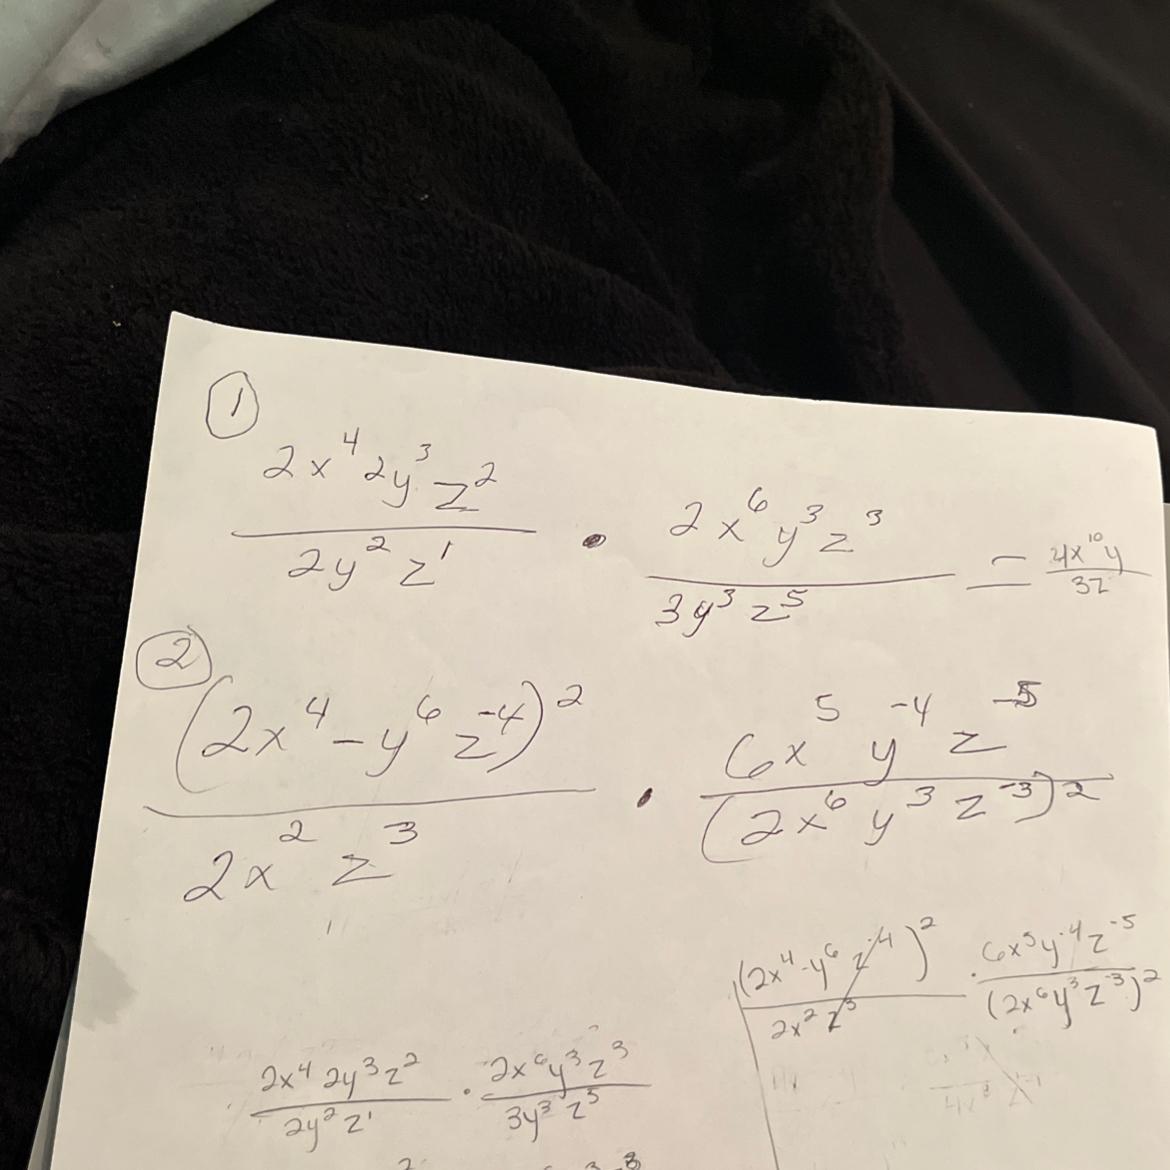 ①
2x⁴2y³z² / 2y²z¹ • 2x⁶y³z³ / 3y³z⁵ = 4x¹⁰y / 3z
②
(2x⁴-y⁶z⁻⁴)² / 2x²z³ • 6x⁵y⁻⁴z⁻⁵ / (2x⁶y³z⁻³)²
(2x⁴-y⁶z⁻⁴)² / 2x²z³ · 6x⁵y⁻⁴z⁻⁵ / (2x⁶y³z⁻³)²
2x⁴2y³z² / 2y²z¹ · 2x⁶y³z³ / 3y³z⁵